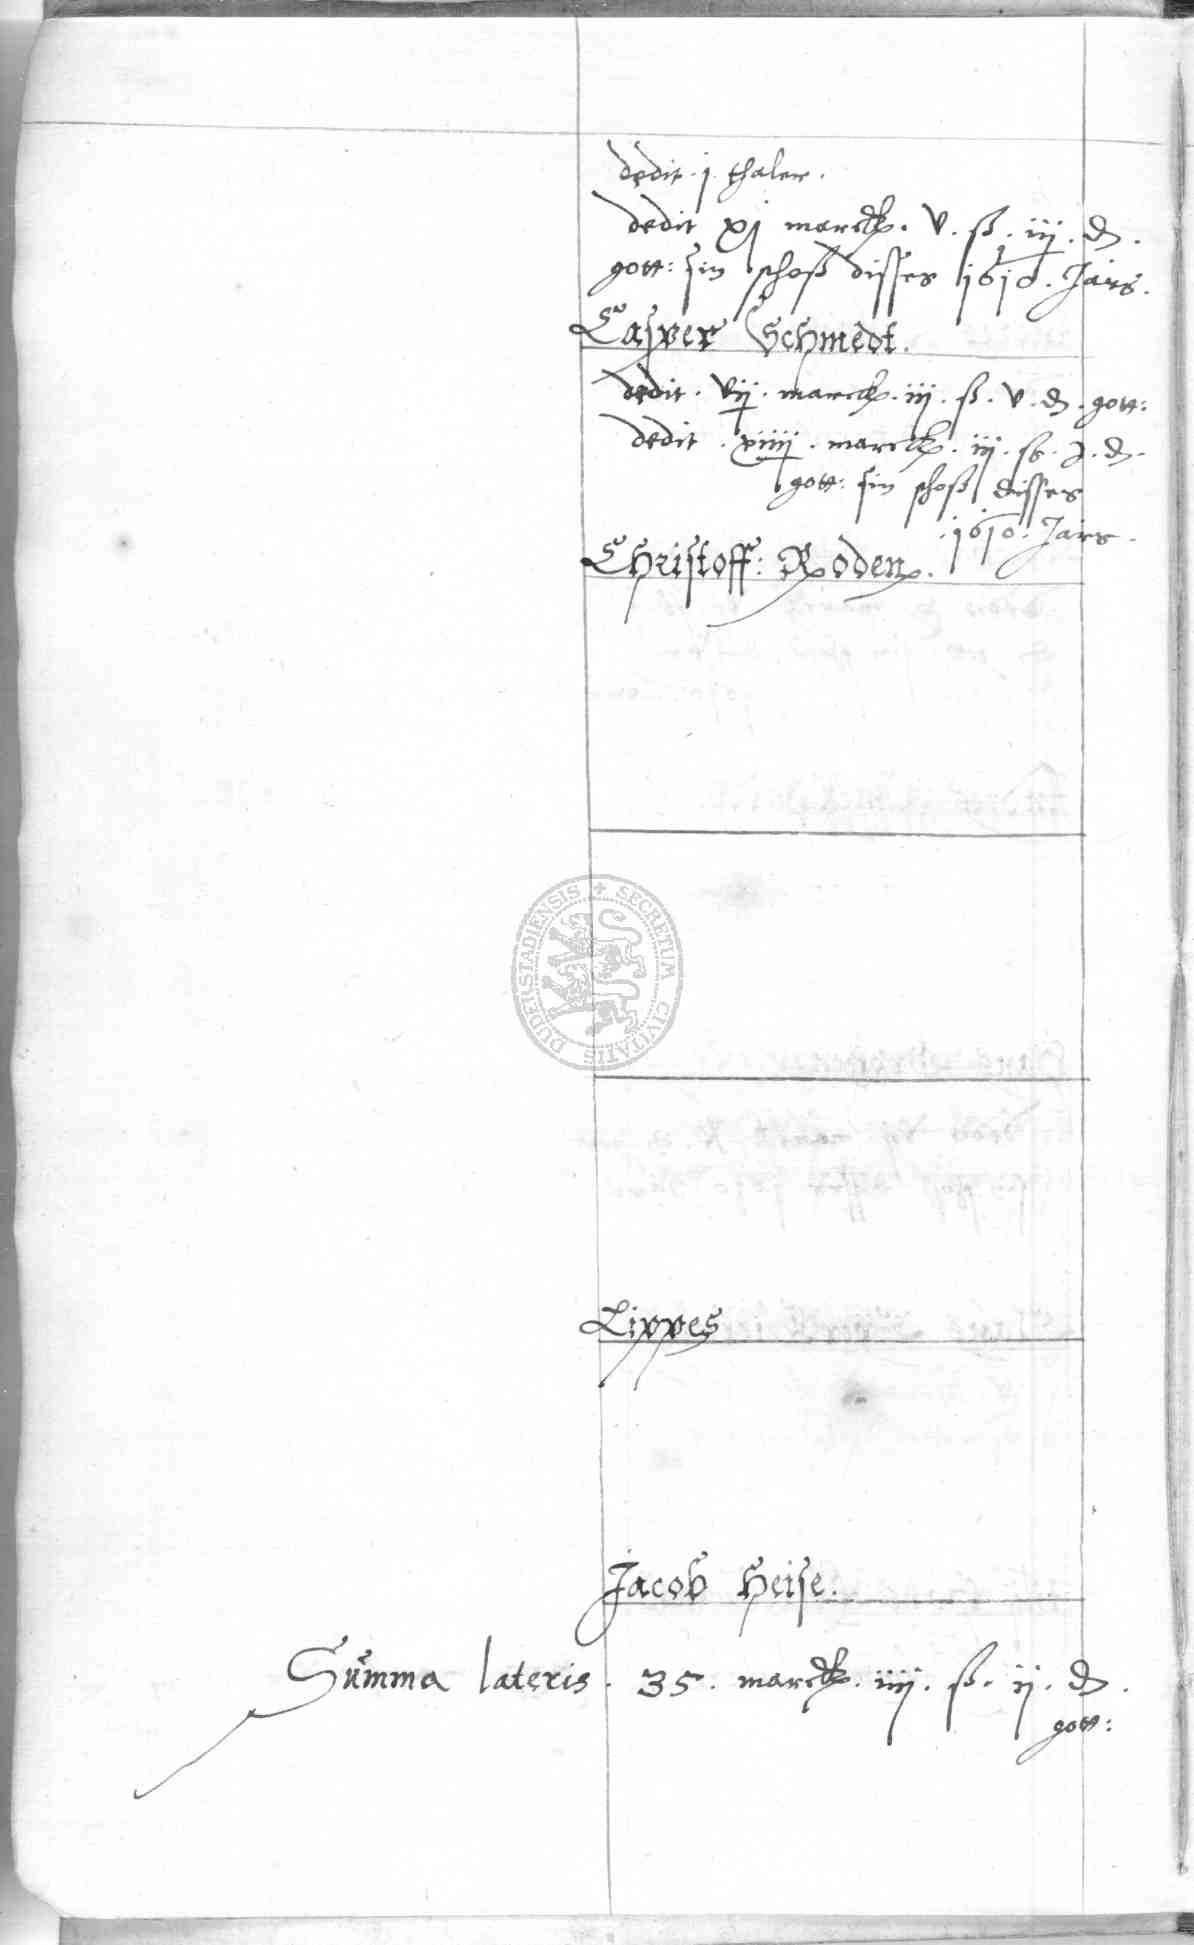 dedit . j . thaler .
dedit xj marck . v . ß . iij . d .
gott: sin schoß disses 1610 . Jars .
Casper Schmedt .
dedit . vij . marck . iij . ß . v . d . gott:
dedit . xiiij . marck . iij . ß . j . d .
gott: sin schoß disses
. 1610 . Jars .
Christoff: Roden .
SECRETUM CIVITATIS DUDERSTADIENSIS
Lippes
Jacob Heise .
Summa lateris . 35 . marck . iiij . ß . ij . d .
gott: